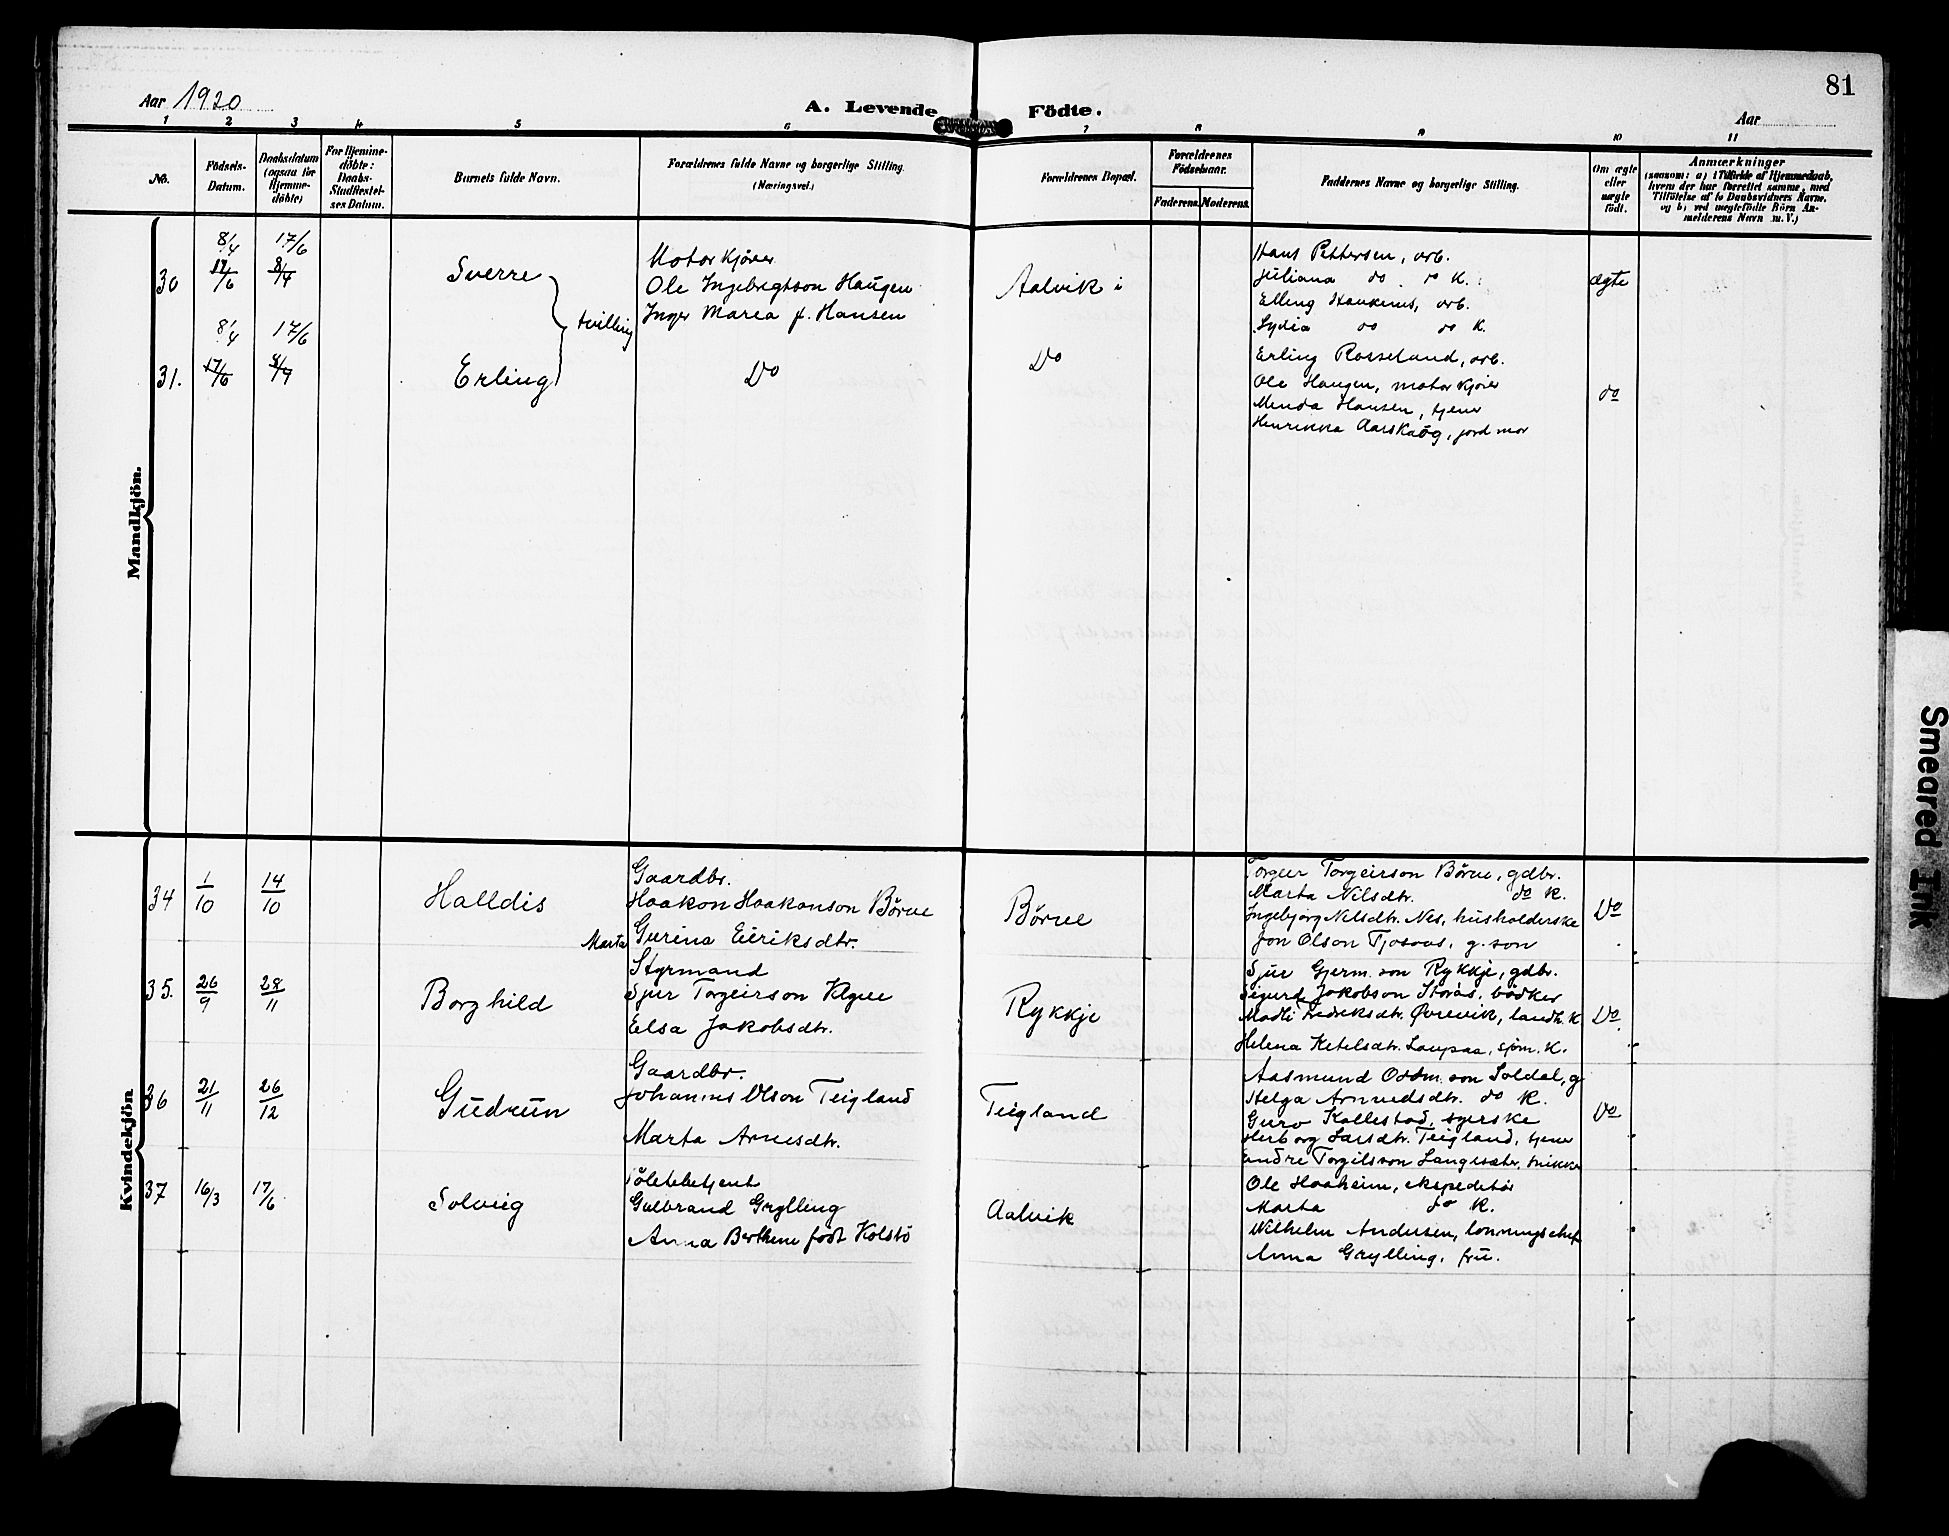 81
Aar 1920
A. Levende Födte.
Aar
1 2 3 4 5 6 7 8 9 10 11
No.
Födsels-Datum.
Daabsdatum (ogsaa for Hjemme-döbte)
For Hjemme-döbte: Daabs-Stadfæstel-ses Datum.
Barnets fulde Navn.
Forældrenes fulde Navne og borgerlige Stilling. (Næringsvei.)
Forældrenes Bopæl.
Forældrenes Födselsaar.
Faderens. Moderens.
Faddernes Navne og borgerlige Stilling.
Om ægte eller uægte födt.
Anmærkninger
(saasom: a) i Tilfælde af Hjemmedaab, hvem der har forrettet samme, med Tilföielse af to Daabsvidners Navne, og b) ved uægtefödte Börn An-melderens Navn m. V.)
Mandkjön.
8/4 17/6
30 17/6 8/4
Sverre
Motorkjører
Ole Ingebrigtson Haugen
Inger Marea f. Hansen
Aalvik i
Hans Pettersen, arb.
Juliana do do K.
Elling, arb.
Sydia do do K.
ægte
tvilling
8/4 17/6
31. 17/6 8/4
Erling
Do
Do
Erling Rosseland, arb.
Ole Haugen, motorkjører
Menda Hansen, tjener
Henrikka Aarskaog, jordmor
do
Kvindekjön
34 1/10 14/10
Halldis
Gaardbr.
Haakon Haakonson Børve
Marta Gurina Eiriksdtr.
Børve
Torgeir Torgeirson Børve, gdbr.
Marta Nilsdtr. do K.
Ingebjørg Nilsdtr. Nes, husholderske
Jon Olson, g. son
Do
35. 26/9 28/11
Borghild
Styrmand
Sjur Torgeirson
Elsa Jakobsdtr.
Rykkje
Sjur Gjerm. son Rykkje, gdbr.
Sigurd Jakobson Storås, bødker
Madli Fredriksdtr. Øvrevik, landh. K
Helena Ketelsdtr. Laupsa, sjøm. K.
Do
36 21/11 26/12
Gudrun
Gaardbr.
Johannes Olson Teigland
Marta Arnesdtr.
Teigland
Aasmund Oddm. son Soldal, g
Helga Arnvedsdtr. do K.
Guro Kallestad, syerske
Herborg Larsdtr. Teigland, tjener
Endre Torgilsson Langesæter, snikker
Do
37 16/3 17/6
Solveig
Toldbetjent
Gulbrand Grylling
Anna Berthine født Kolstø
Aalvik
Ole Haaheim, ekspeditør
Marta do K.
Wilhelm Andersen, lønningschef
Anna Grylling, fru.
Smeared Ink